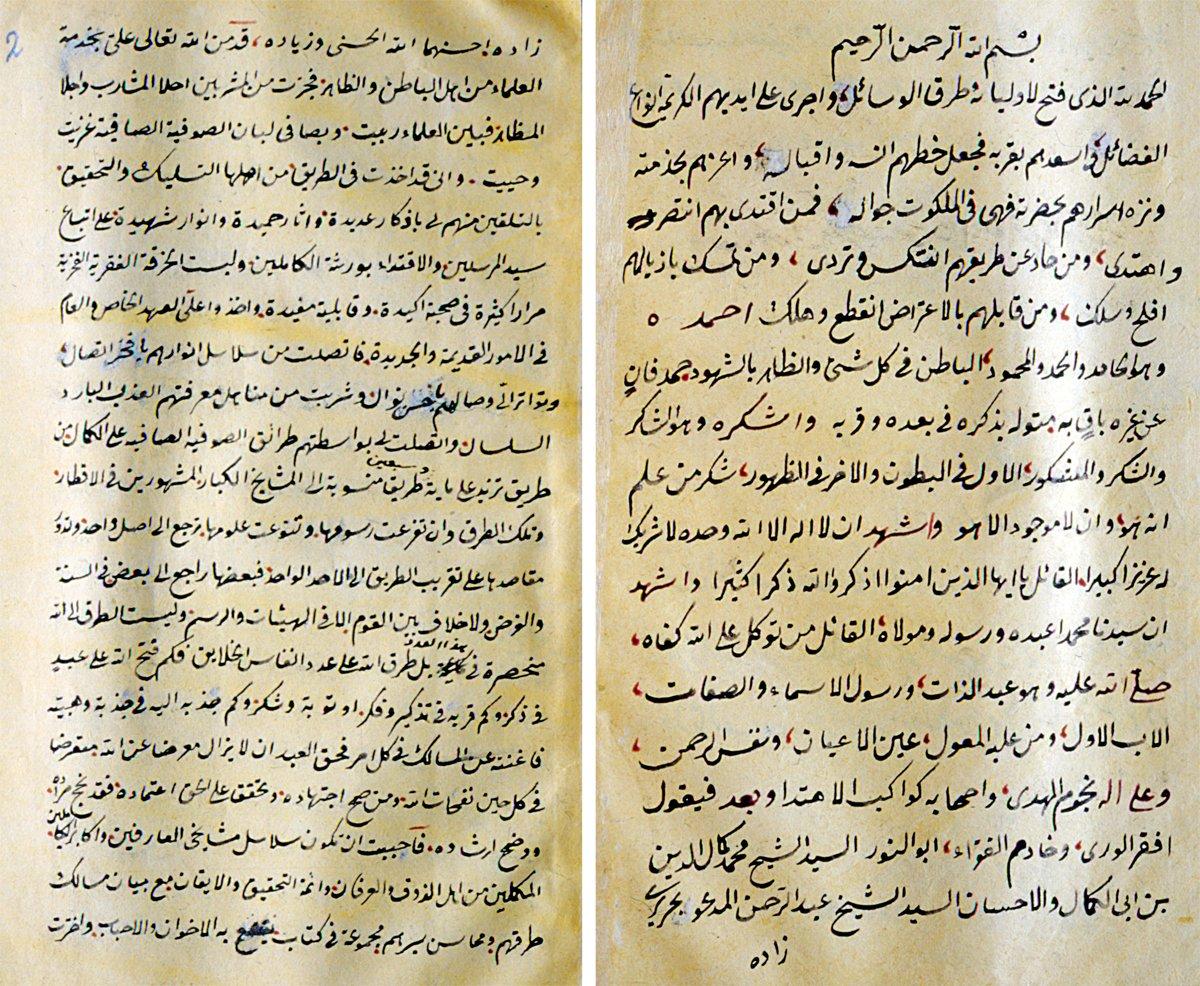 بسم الله الرحمن الرحيم
الحمد لله الذى فتح لاوليائه طرق الوسائل، واجرى على ايديهم الكريمة انواع
الفضائل، اسعدهم بقربه فجعل حظهم انسه واقباله، واعزهم بخدمته
ونزه اسرارهم بحضرته فهى فى الملكوت جواله، فمن اقتدى بهم انتصر
واهتدى، ومن حاد عن طريقهم انتكس وتردى، ومن تمسك باذيالهم
افلح وسلك، ومن قابلهم بالاعتراض انقطع وهلك احمده
وهو الحامد والحمد والمحمود، الباطن فى كل شئ والظاهر بالشهود، حمد فانٍ
عن غيره باقٍ به متوله بذكره فى بعده وقربه واشكره وهو الشاكر
والشكر والمشكور، الاول فى البطون والاخر فى الظهور، شكر من علم
انه هو، وان لا موجود الا هو واشهد ان لا اله الا الله وحده لا شريك
له عزيزا كبيرا، القائل يا ايها الذين امنوا اذكروا الله ذكرا كثيرا واشهد
ان سيدنا محمدا عبده ورسوله ومولاه القائل من توكل على الله كفاه،
صلى الله عليه وهو عبد الذات، ورسول الاسماء والصفات،
الاب الاول، ومن عليه المعول، عين الاعيان، ونفس الرحمن،
وعلى اله نجوم الهدى، واصحابه كواكب الاهتدا وبعد فيقول
افقر الورى، وخادم الفقراء، ابو النور السيد الشيخ محمد كمال الدين
بن ابى الكمال والاحسان السيد الشيخ عبد الرحمن المدعو بحريرى
زاده
2
زاده احسنهما الله الحسنى وزياده، قد من الله تعالى على بخدمة
العلماء من اهل الباطن والظاهر فحزت من المشربين احلا المشارب واجلا
المظاهر فبلبن العلماء ربيت وبصافى لبان الصوفية الصافية غذيت
وحييت وانى قد اخذت فى الطريق من اهلها التسليك والتحقيق
بالتلقين منهم لى باذكار عديدة واثار حميدة وانوار شهيدة على اتباع
سيد المرسلين والاقتداء بورثة الكاملين ولبست الخرقة الفقرية الفخرية
مرارا كثيرة فى صحبة اكيدة وقابلية مفيدة واخذوا على العهد الخاص والعام
فى الامور القديمة والجديدة فاتصلت من سلاسل انوارهم بافخر اتصال
وتواتر الى وصالهم باحسن نوال وشربت من مناهل معرفتهم العذب البارد
السلسال واتصلت لى بواسطتهم طرائق الصوفية الصافية على الكمال من
طريق تزيد على ماية وسبعين طريقا منسوبة الى المشايخ الكبار المشهورين فى الاقطار
وتلك الطرق وان تفرعت رسومها وتنوعت علومها ترجع الى اصل واحد
مقاصدها على تقريب الطريق الى الاحد الواحد فبعضها راجع الى بعض فى السنة
والفرض ولا خلاف بين القوم الا فى الهيئات والرسم وليست الطرق الى الله
منحصرة فى هذا العدد بل طرق الله على عدد انفاس الخلايق فكم فتح الله على عبيد
فى ذكر وكم قربه فى تذكير وفكر او توبة وشكر وكم جذبه اليه فى جذبة وهبية
فاغنته عن المسالك فى كل امر فحق العبد ان لا يزال معرضا عن الله متعرضا
فى كل حين نفحات الله ومن صح اجتهاده وتحقق على الحق اعتماده فقد نجح مراده
ووضح ارشاده فاحببت ان تكون سلاسل مشايخى العارفين واكابر الكاملين
المكملين من اهل الذوق والعرفان وائمة التحقيق والايقان مع بيان مسالك
طرقهم ومحاسن سيرهم مجموعة فى كتاب ينتفع به الاخوان والاحباب